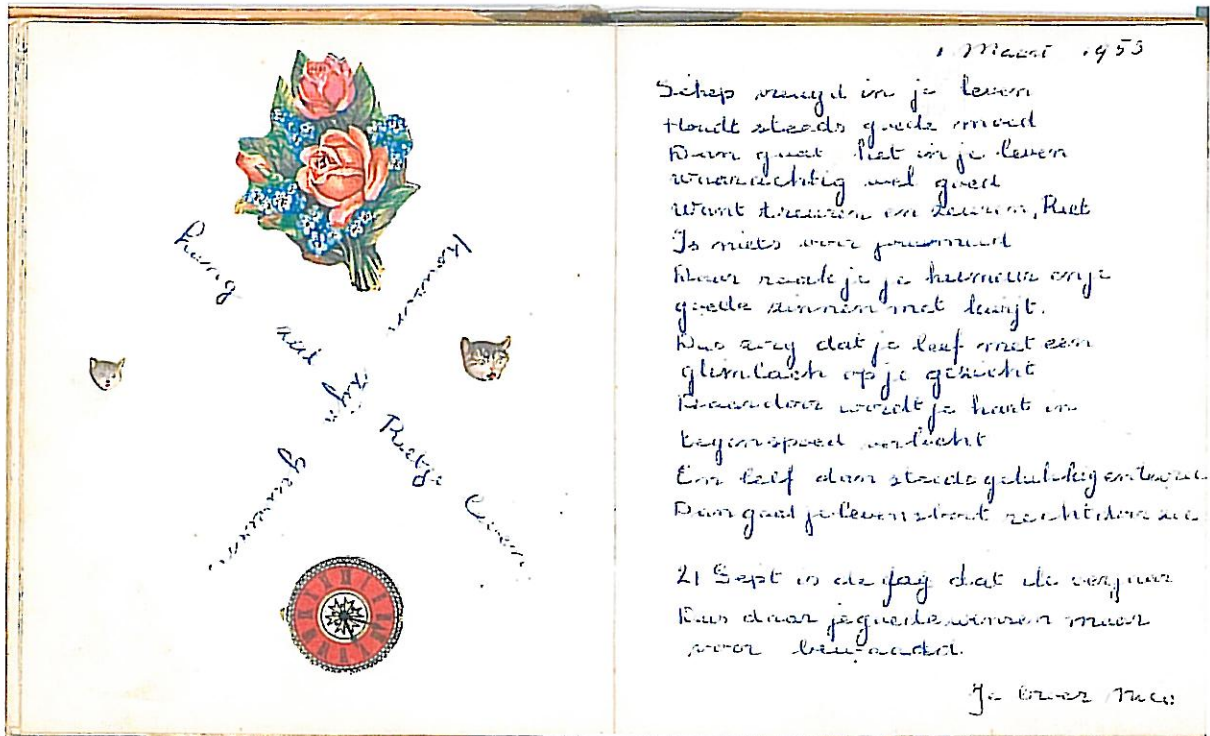 lang zal Rietje leven
konijn
zijn
1 Maart 1953
Schep vreugd in je leven
Houdt steeds goede moed
Dan gaat het in je leven
waarachtig wel goed
Want treuren en zeuren, Riet
Is niets voor
Daar raak je je humeur en je
goede zinnen met kwijt.
Dus zorg dat je leef met een
glimlach op je gezicht
Daardoor wordt je hart in
tegenspoed verlicht
En leef dan steeds gelukkig en
Dan gaat je levensboot recht door zee
21 Sept is de dag dat ik verjaar
Dus daar je goede wensen maar
voor bewaard.
Je broer